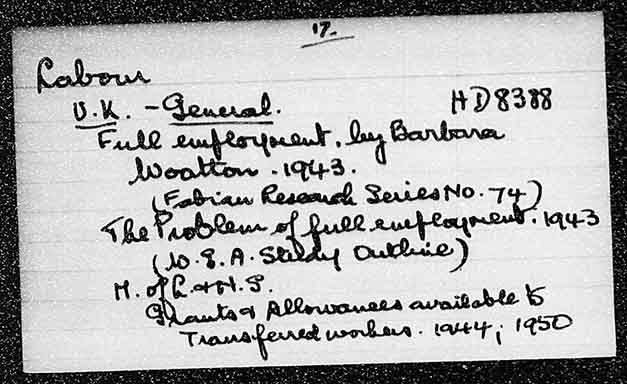 17.
Labour
U.K. - General. HD8388
Full employment, by Barbara
Wootton. 1943.
(Fabian Research Series No. 74)
The Problem of full employment. 1943
(W.E.A. Study Outline)
M. of L. & N.S.
Grants & Allowances available to
Transferred workers. 1944; 1950